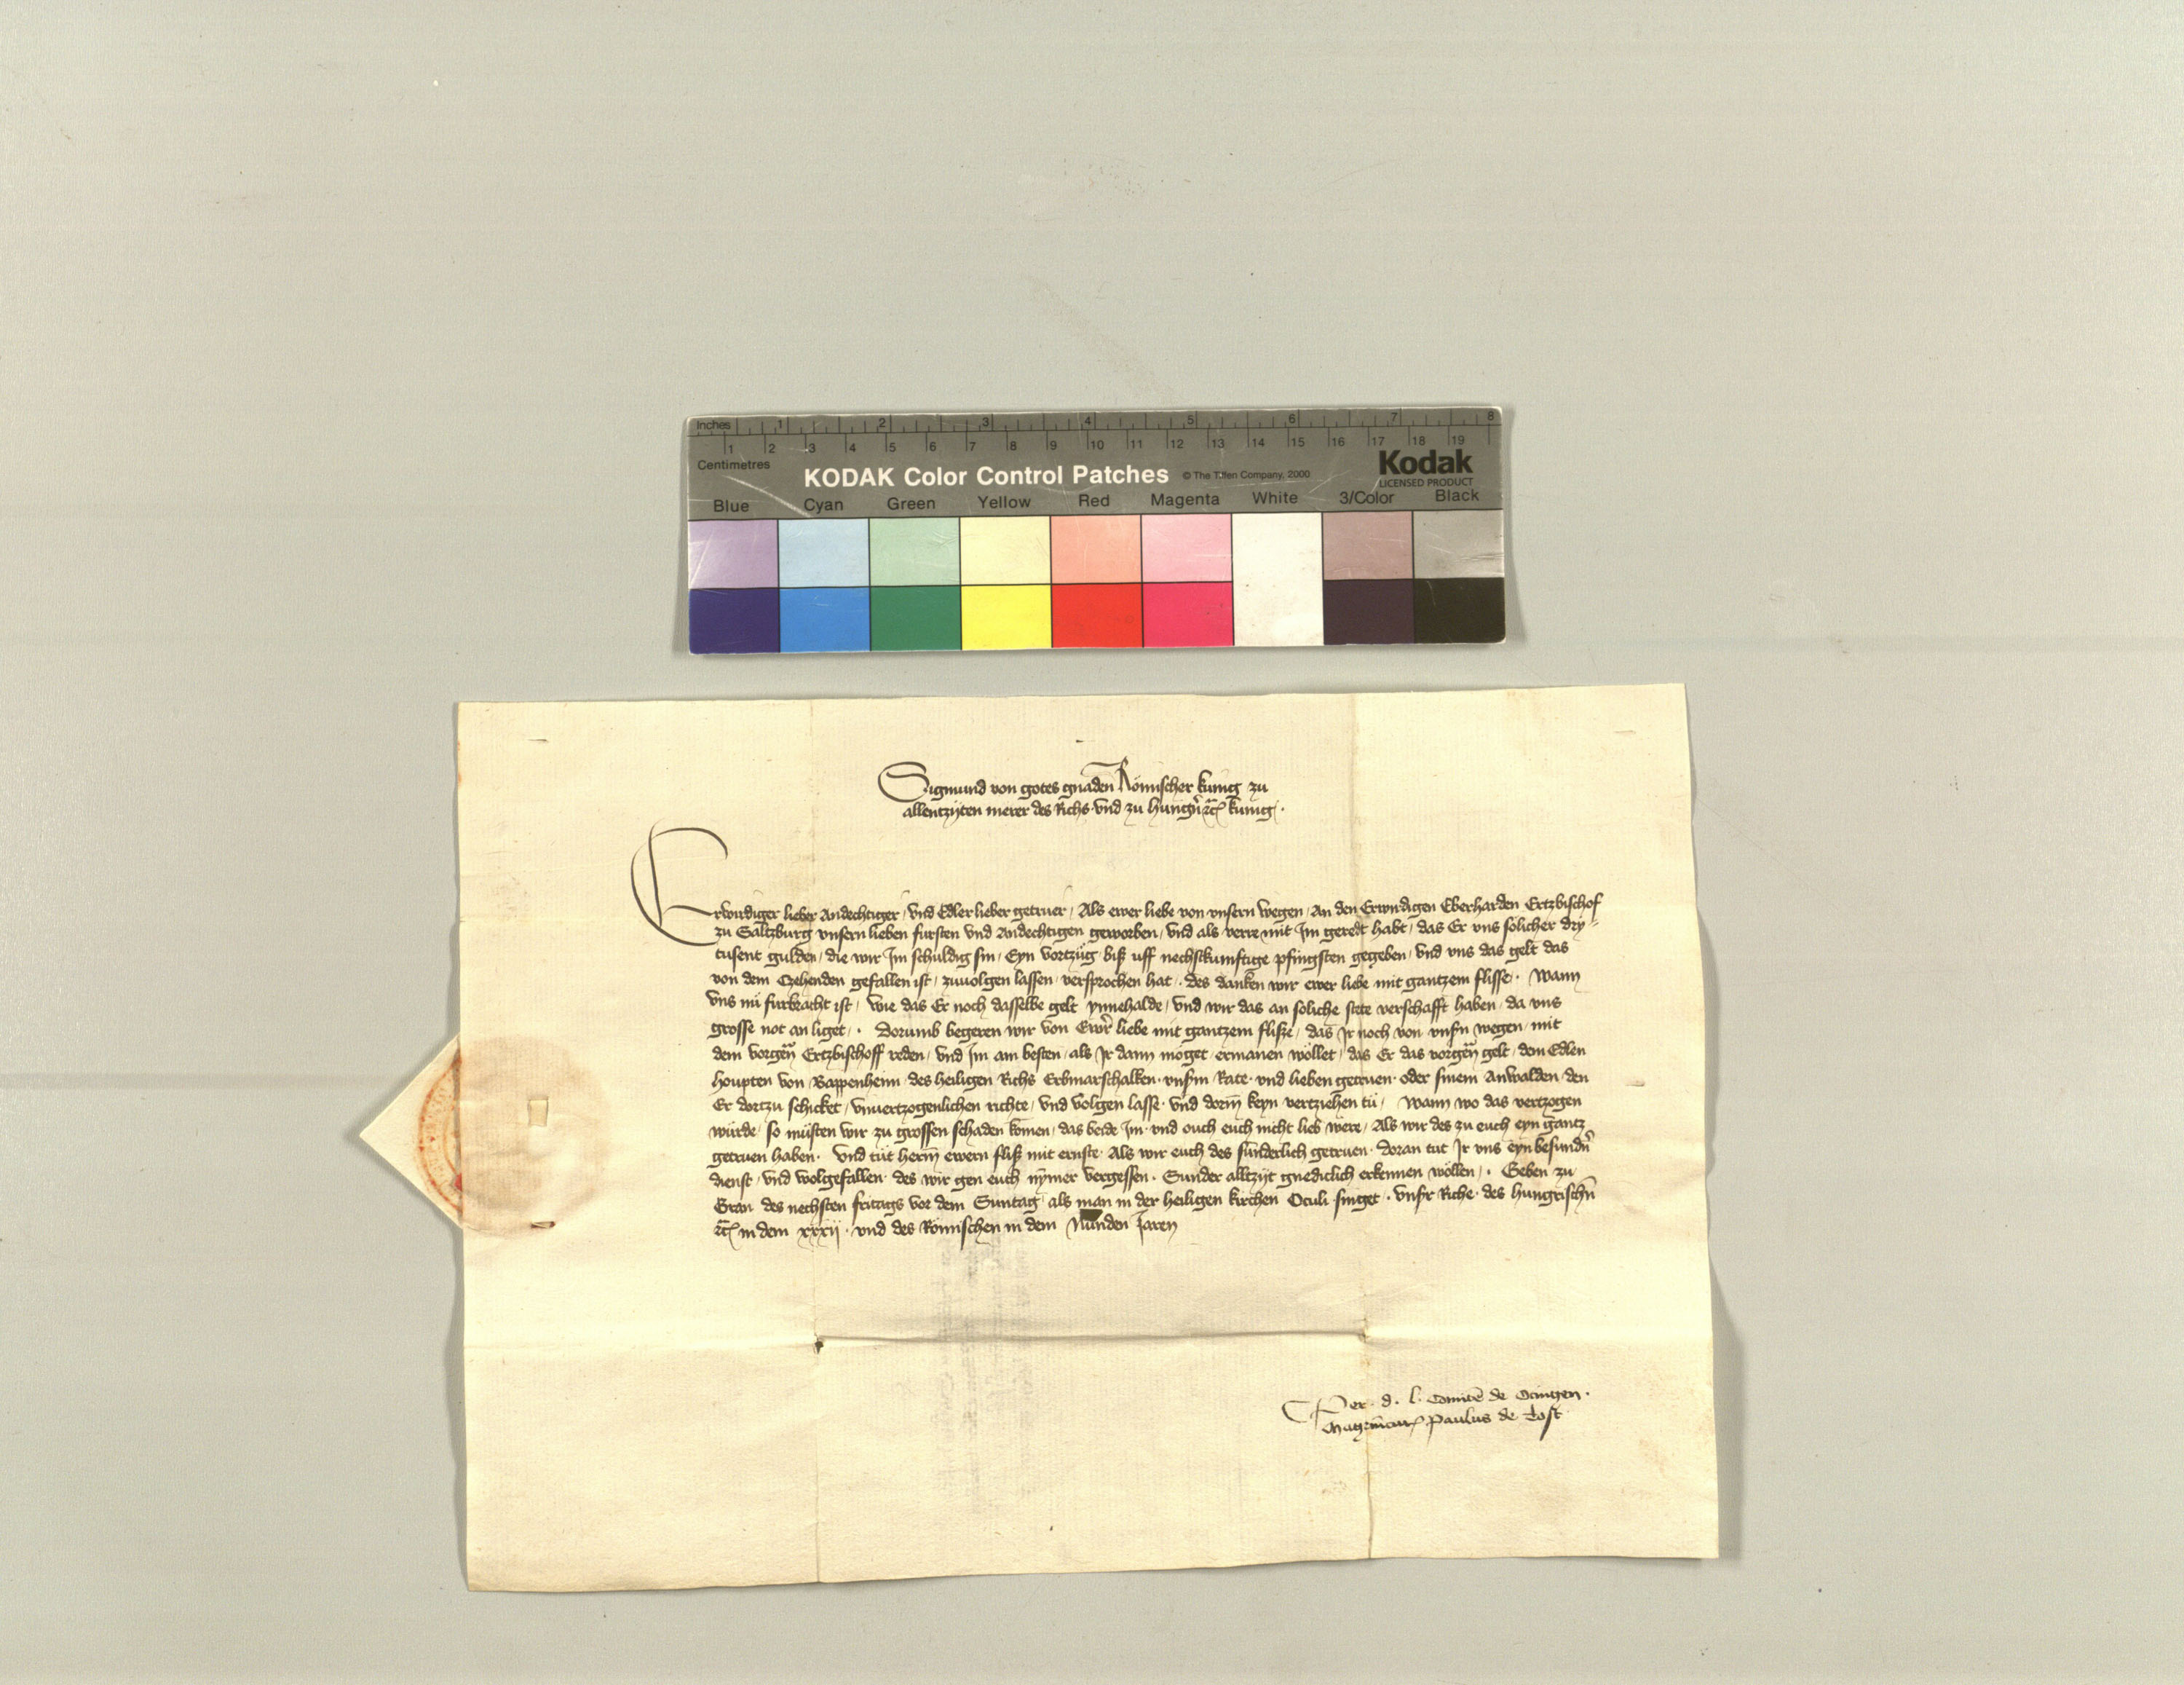 Inches 1 2 3 4 5 6 7 8
1 2 3 4 5 6 7 8 9 10 11 12 13 14 15 16 17 18 19
Centimetres
KODAK Color Control Patches © The Tiffen Company, 2000 Kodak
LICENSED PRODUCT
Blue Cyan Green Yellow Red Magenta White 3/Color Black
Sigmund von gotes gnaden Römischer kunig zu
allentzijten merer des Richs vnd zu hungern̄ etc̄ kunig
Erwirdiger lieber Andechtiger, vnd Edler lieber getruer, Als ewer liebe von vnsern wegen, An den Erwirdigen Eberharden Ertzbischof
zu Saltzburg vnsern lieben fursten vnd Andechtigen geworben, vnd als verre mit Im geredt habt, das Er vns solicher dry-
tusent gulden, die wir Im schuldig sin, Eyn vortzug biß uff nechstkunftige pfingsten gegeben, vnd vns das gelt das
von dem Czehenden gefallen ist, zuuolgen lassen, versprochen hat. des danken wir ewer liebe mit gantzem flisse. Wann
vns nu furbracht ist, wie das Er noch dasselbe gelt ynnehalde, vnd wir das an soliche stete verschafft haben, da vns
grosse not an liget. dorumb begeren wir von Ewr̄ liebe mit gantzem fliße, das Ir noch von vnsn̄ wegen, mit
dem vorgen̄ Ertzbischoff reden, vnd Im am besten, als Ir dann moget, ermanen wöllet, das Er das vorgen̄ gelt, dem Edlen
houpten von Bappenheim des heiligen Richs Erbmarschalken. vnsm̄ Rate. vnd lieben getruen. oder sinem Anwalden, den
Er dortzu schicket, vnuertzogenlichen richte, vnd volgen lasse. vnd dorin̄ keyn vertziehen tü, Wann wo das vertzogen
würde, so müsten wir zu grossen schaden komen, das beide Im. vnd ouch euch nicht lieb were, Als wir des zu euch eyn gantz
getruen haben. vnd tüt herin̄ ewern fliß mit ernste. Als wir euch des sunderlich getruen. doran tut Ir vns eyn besundn̄
dienst, vnd wolgefallen. des wir gen euch nymer vergessen. Sunder alltzijt gnediclich erkennen wöllen. Geben zu
Gran des nechsten fritags vor dem Suntag, als man in der heiligen kirchen Oculi singet. vnsr̄ Riche des hungrischn̄
etc̄ in dem xxxij. vnd des Römischen in dem Nunden Jaren
Per. d. l. Comitē de Otingen.
Paulus de Tost